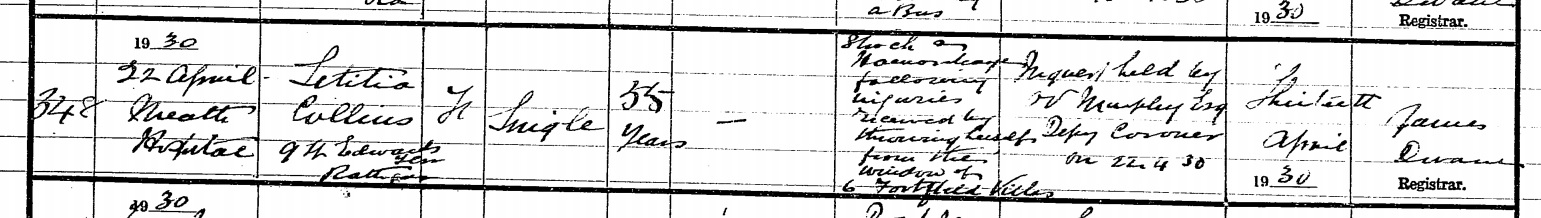 a Bus
19 30
Registrar.
348
19 30
22 April
Meath
Hospital
Letitia
Collins
9 St Edwards
Ter
Rathgar
F
Single
55
Years
—
Shock &
Haemorrhage
following
injuries
received by
throwing herself
from the
window of
6 Fortfield Villas
Inquest held by
Murphy Esq
Depy Coroner
on 22 4 30
Thirtieth
April
19 30
James
Dwane
Registrar.
19 30